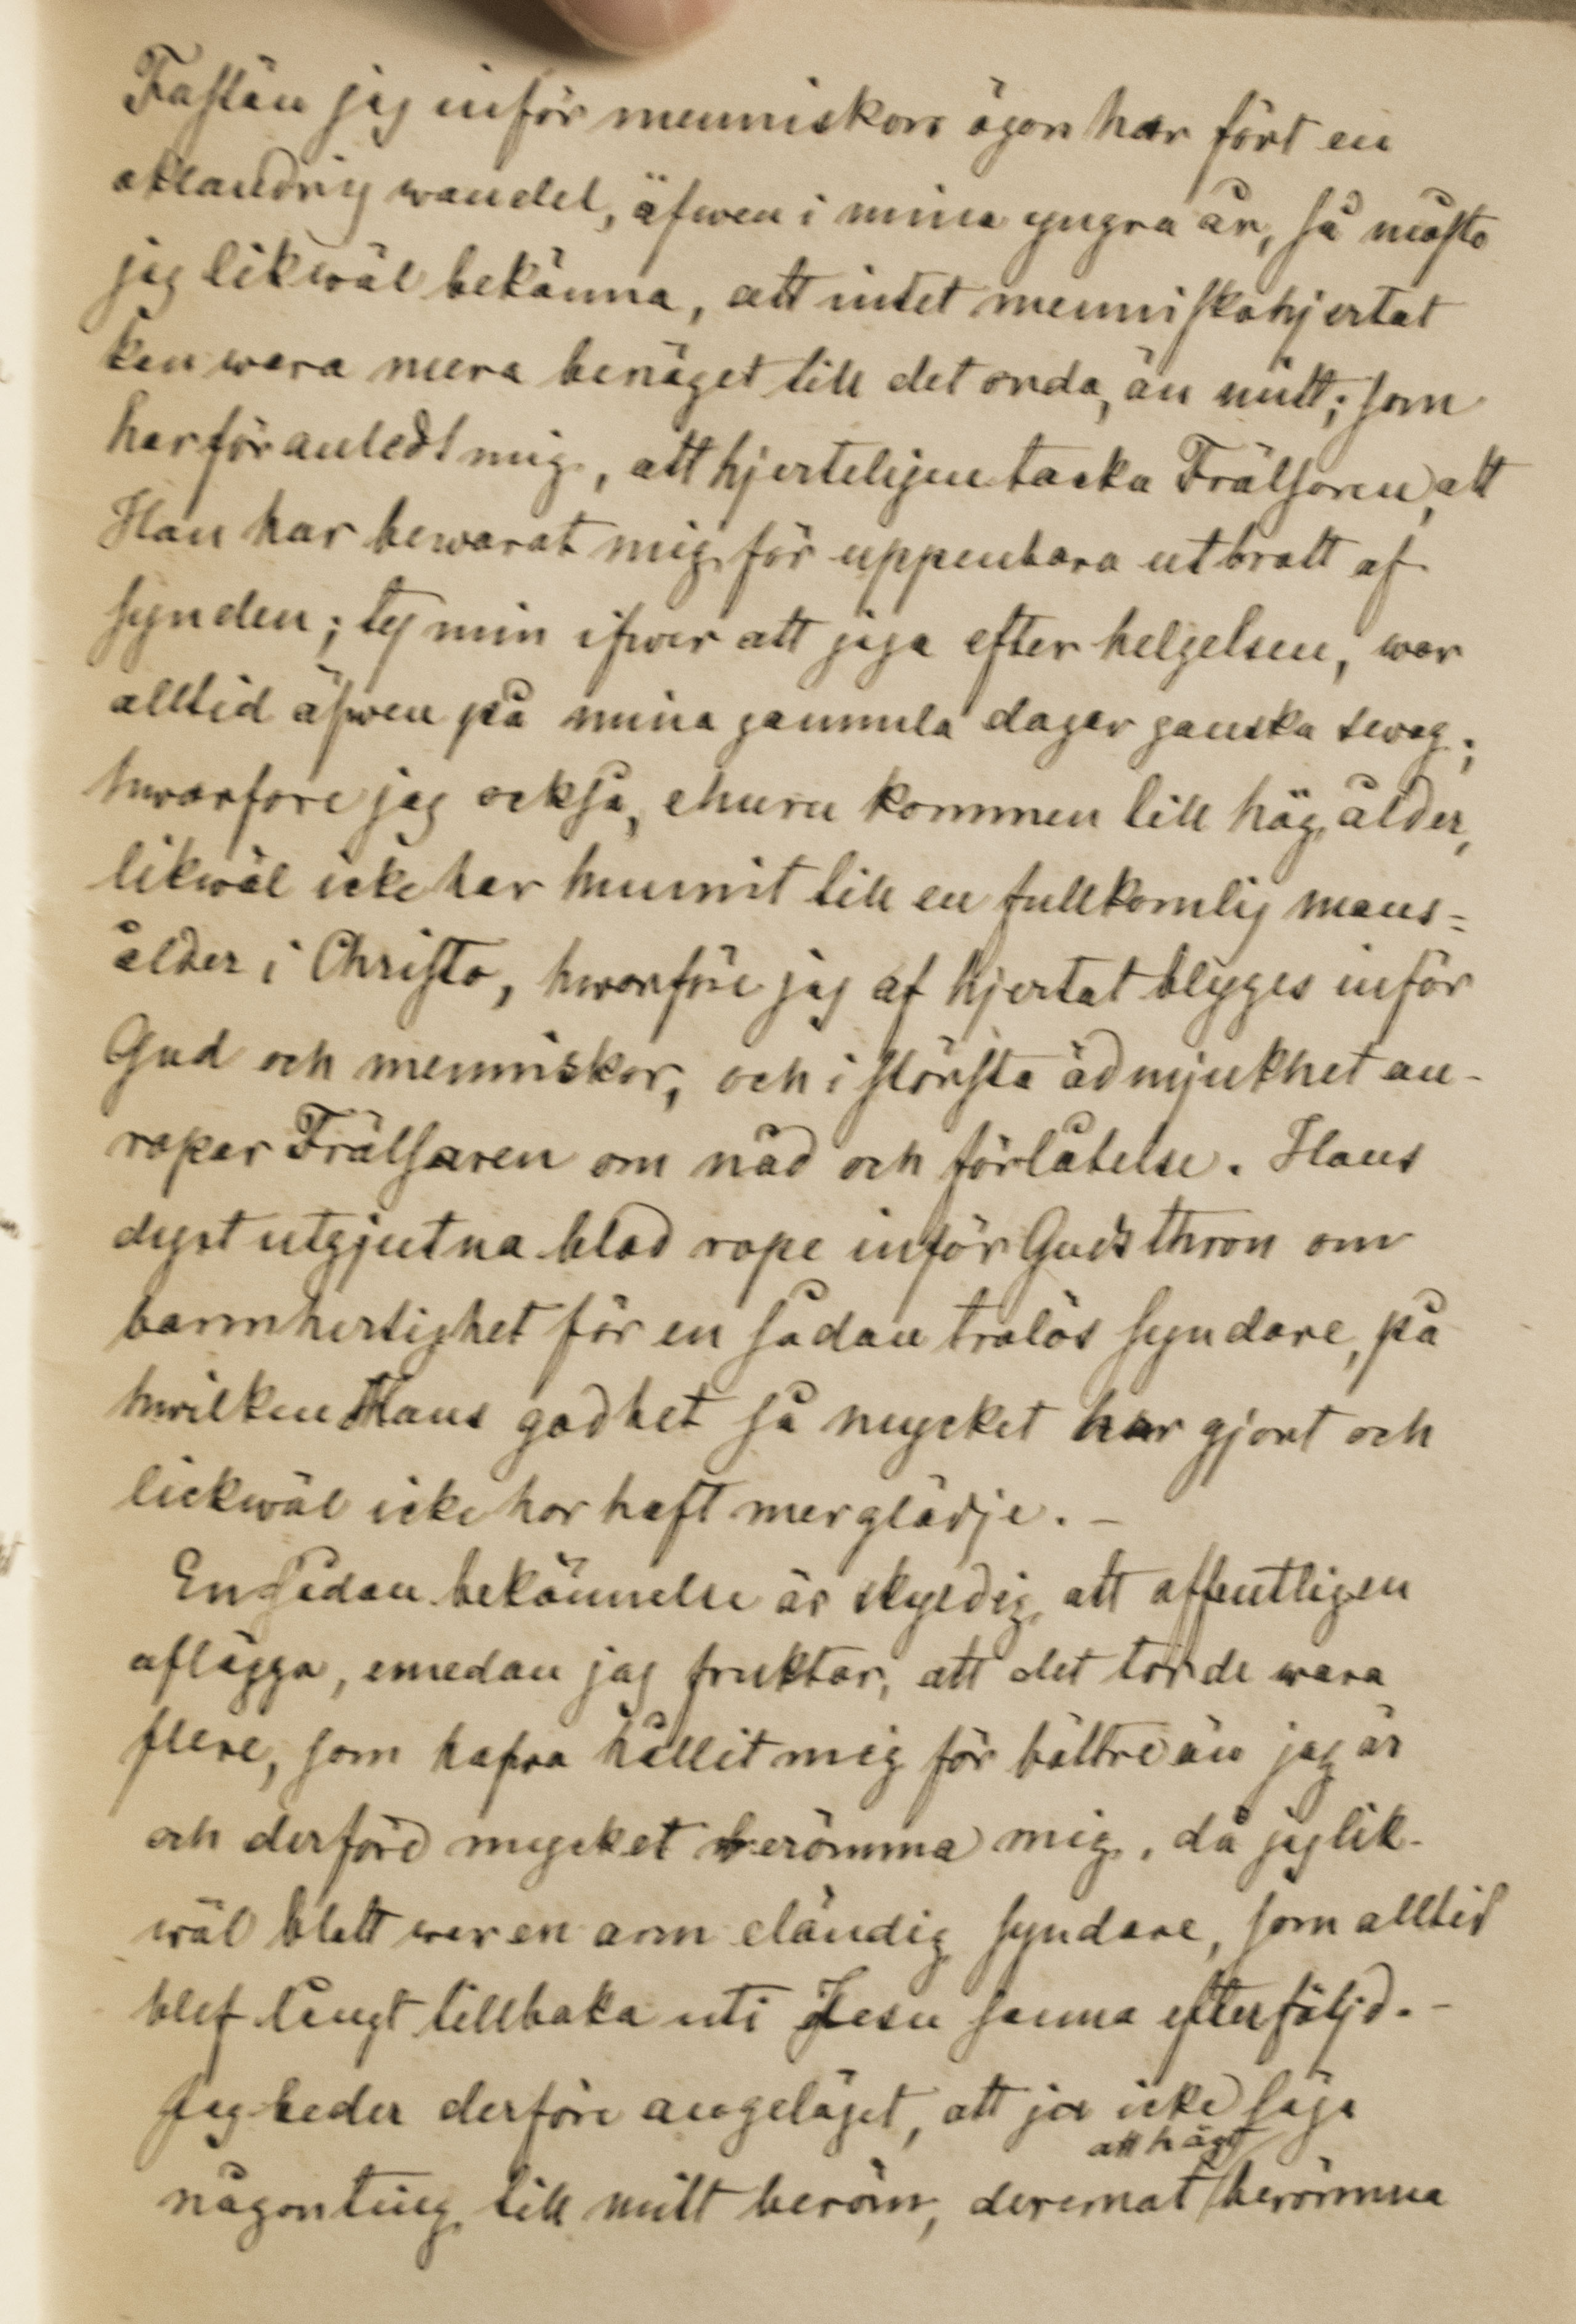 Fastän jag inför menniskors ögon har fört en
oklandrig wandel, äfwen i mina yngra år, så måste
jag likwäl bekänna, att intet menniskohjertat
kan wara mera benäget till det onda, än mitt; som
har föranledt mig, att hjerteligen tacka Frälsaren, att
Han har bewarat mig för uppenbara utbratt af
synden; ty min ifwer att jaga efter helgelsen, war
alltid äfwen på mina gammla dagar ganska swag;
hwarföre jag också, ehuru kommen till hög ålder,
likwäl icke har hunnit till en fullkomlig mans=
ålder i Christo, hwarföre jag af hjertat blyges inför
Gud och menniskor, och i största ödmjukhet an-
ropar Frälsaren om nåd och förlåtelse. Hans
dyrt utgjutna blod rope inför Guds thron om
barmhertighet för en sådan trolös syndare, på
hwilken Hans godhet så mycket har gjort och
lickwäl icke har haft mer glädje. -
En sådan bekännelse är skyldig, att offentligen
aflägga, emedan jag fruktar, att det torde wara
flere, som hafwa hållit mig för bättre än jag är
och derföre mycket berömma mig, då jag lik-
wäl blott war en arm eländig syndare, som alltid
blef långt tillbaka uti Jesu sanna efterföljd. -
Jag beder derföre angeläget, att ja icke säga
att högt
någonting till mitt beröm, deremot berömma